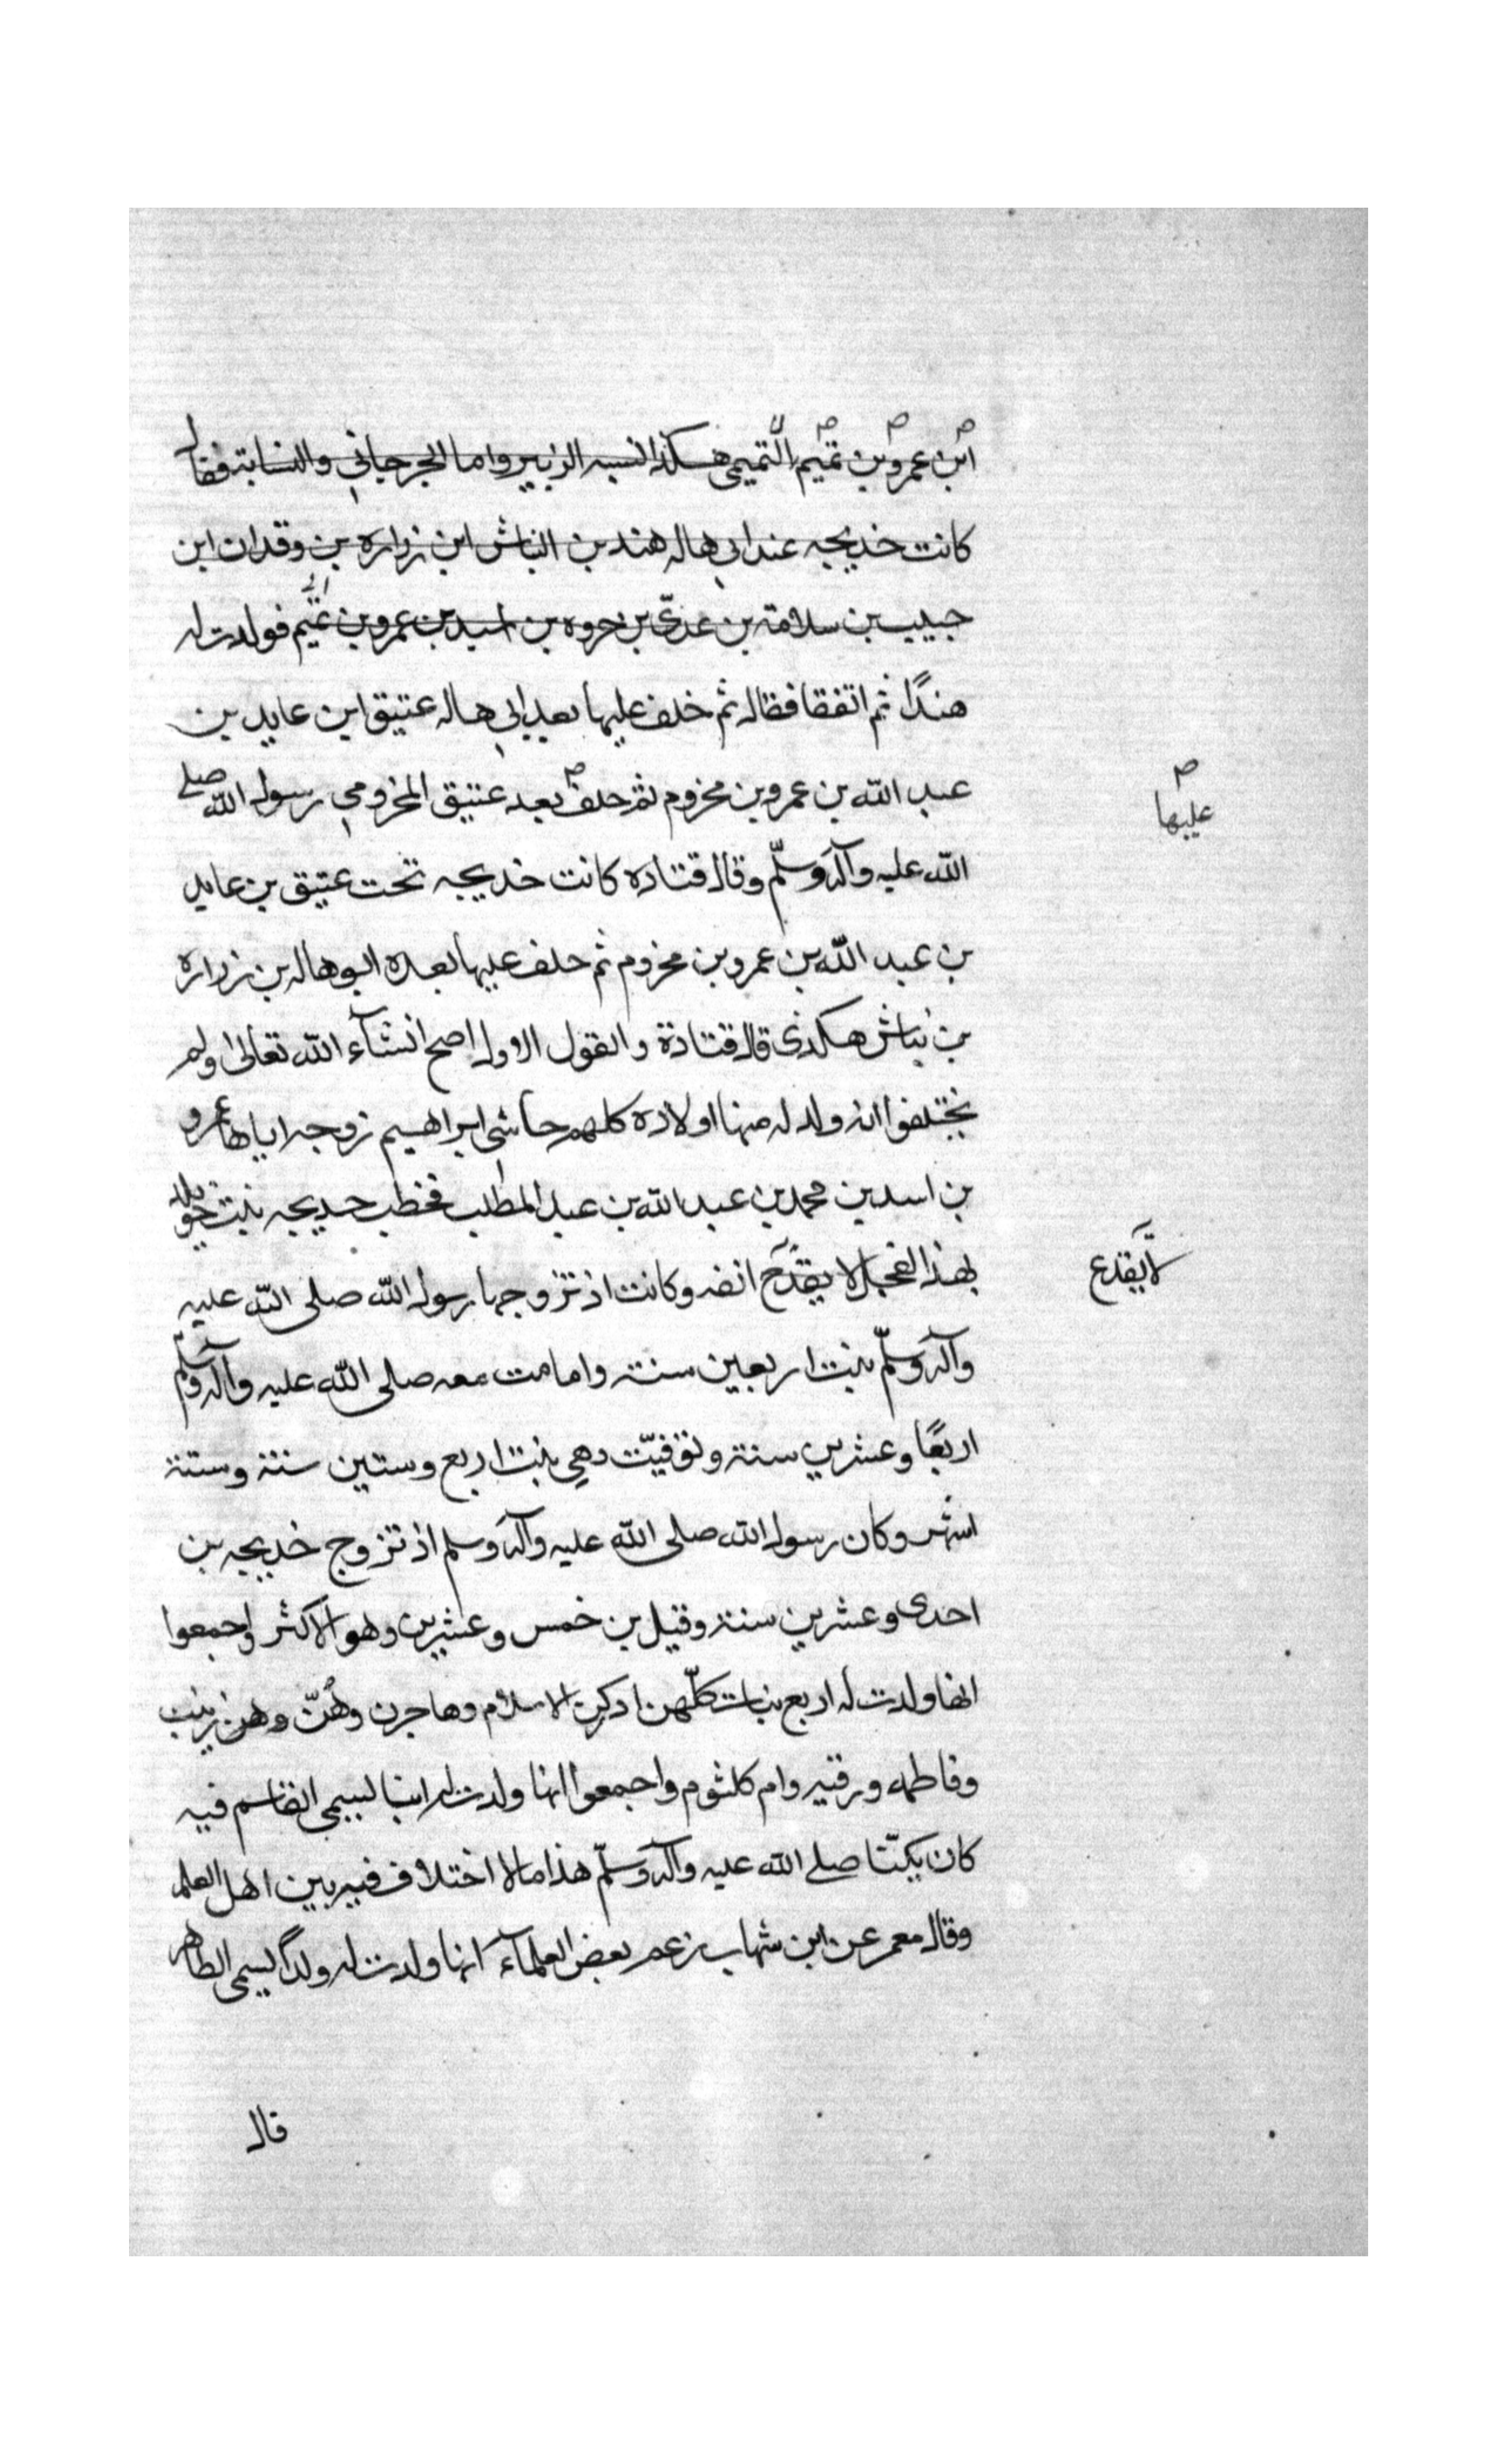 ابن عمرو بن تميم التميمى هكذا نسبه الزبير واما الجرجاني والنسابة فقال
كانت خديجه عند ابي هاله هند بن النباش ابن زراره بن وقدان ابن
حبيب بن سلامة بن عدي بن جروه بن اسيد بن عمرو بن تميم فولدت له
هندًا ثم اتفقا فقالا ثم خلف عليها بعد ابي هاله عتيق ابن عايد بن
عبد الله بن عمرو بن مخزوم ثم خلف بعد عتيق المخزومي رسول الله صلى
عليها
الله عليه وآله وسلّم وقال قتاده كانت خديجه تحت عتيق بن عايد
بن عبد الله بن عمرو بن مخزوم ثم خلف عليها بعده ابو هاله بن زراره
بن نباش هكذى قال قتادة والقول الاول اصح انشآء الله تعالى ولم
يختلفوا انه ولد له منها اولاده كلهم حاشى ابراهيم زوجه اياها عمرو
بن اسد بن محمد بن عبد الله بن عبد المطلب فخطب خديجه بنت خويلد
بهذا الفحل لا يقدح انفه وكانت اذ تزوجها رسول الله صلى الله عليه
لا يقدع
وآله وسلّم بنت اربعين سنة واقامت معه صلى الله عليه وآله وسلم
اربعًا وعشرين سنة وتوفيّت وهي بنت اربع وستين سنة وستة
اشهر وكان رسول الله صلى الله عليه وآله وسلم اذ تزوج خديجه بن
احدى وعشرين سنة وقيل بن خمس وعشرين وهو الاكثر واجمعوا
انها ولدت له اربع بنات كلّهن ادركن الاسلام وهاجرن وهُنّ وهن زينب
وفاطمه ورقيه وام كلثوم واجمعوا انها ولدت له ابنا يسمى القاسم فيه
كان يكنّا صلى الله عليه وآله وسلّم هذا مالا اختلاف فيه بين اهل العلم
وقال معمر عن ابن شهاب زعم بعض العلمآء انها ولدت له ولدًا يسمى الطاهر
قال